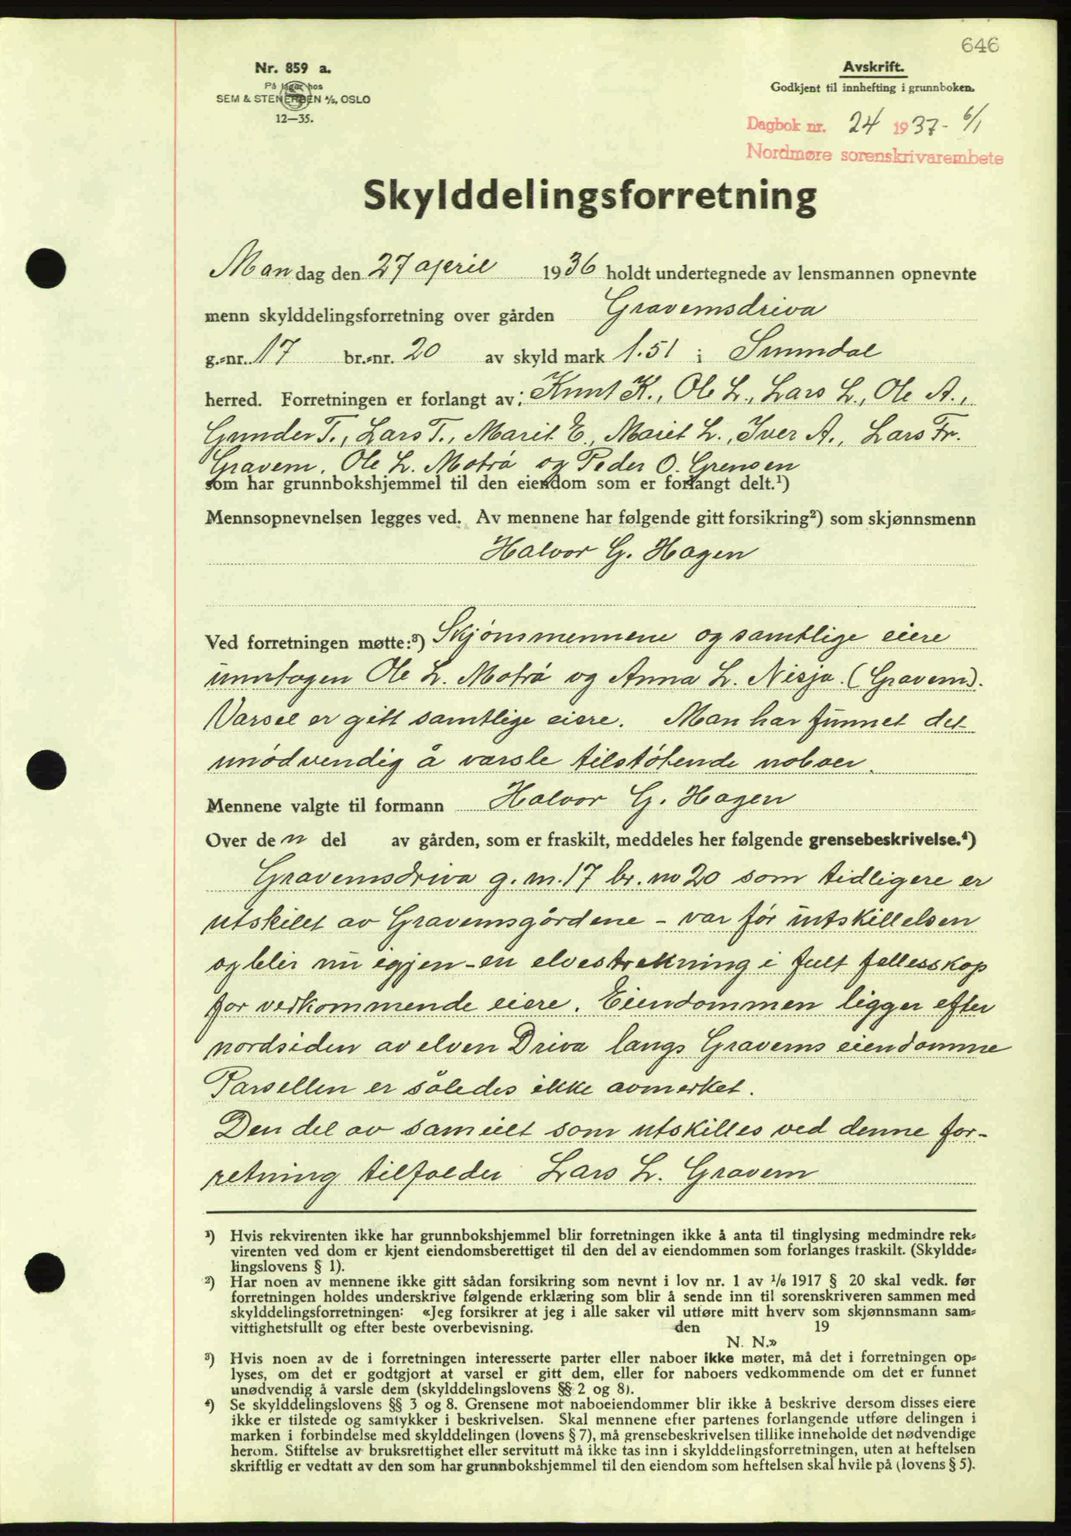 646
Nr. 859 a.
På lager hos
SEM & STENERSEN A/S, OSLO
12—35.
Avskrift.
Godkjent til innhefting i grunnboken.
Dagbok nr. 24 1937- 6/1
Nordmøre sorenskrivarembete
Skylddelingsforretning
Mandag den 27 april 1936 holdt undertegnede av lensmannen opnevnte
menn skylddelingsforretning over gården Gravemsdriva
g.-nr. 17 br.-nr. 20 av skyld mark 1.51 i Sunndal
herred. Forretningen er forlangt av: Knut K., Ole L., Lars L., Ole A.,
Gunder T., Lars T., Marit E., Marit L., Iver A., Lars Fr.
Gravem, Ole L. Motrø og Peder O. Grensen
som har grunnbokshjemmel til den eiendom som er forlangt delt.¹)
Mennsopnevnelsen legges ved. Av mennene har følgende gitt forsikring²) som skjønnsmenn
Halvor G. Hagen
Ved forretningen møtte:³) Skjønsmennene og samtlige eiere
unntagen Ole L. Motrø og Anna L. Nisja. (Gravem).
Varsel er gitt samtlige eiere. Man har funnet det
unødvendig å varsle tilstøtende naboer.
Mennene valgte til formann Halvor G. Hagen
Over den del av gården, som er fraskilt, meddeles her følgende grensebeskrivelse.⁴)
Gravemsdriva g. nr. 17 br. no 20 som tidligere er
utskilt av Gravemsgårdene - var før utskillelsen
og blir nu igjen - en elvestrekning i fult fellesskap
for vedkommende eiere. Eiendommen ligger efter
nordsiden av elven Driva langs Gravems eiendomme
Parsellen er således ikke avmerket.
Den del av sameiet som utskilles ved denne for-
retning tilfalder Lars L. Gravem
¹) Hvis rekvirenten ikke har grunnbokshjemmel blir forretningen ikke å anta til tinglysing medmindre rek-
virenten ved dom er kjent eiendomsberettiget til den del av eiendommen som forlanges fraskilt. (Skyldde-
lingslovens § 1).
²) Har noen av mennene ikke gitt sådan forsikring som nevnt i lov nr. 1 av 1/6 1917 § 20 skal vedk. før
forretningen holdes underskrive følgende erklæring som blir å sende inn til sorenskriveren sammen med
skylddelingsforretningen: «Jeg forsikrer at jeg i alle saker vil utføre mitt hverv som skjønnsmann sam-
vittighetsfullt og efter beste overbevisning. den 19
N. N.»
³) Hvis noen av de i forretningen interesserte parter eller naboer ikke møter, må det i forretningen op-
lyses, om det er godtgjort at varsel er gitt dem, eller for naboers vedkommende om det er funnet
unødvendig å varsle dem (skylddelingslovens §§ 2 og 8).
⁴) Se skylddelingslovens §§ 3 og 8. Grensene mot naboeiendommer blir ikke å beskrive dersom disses eiere
ikke er tilstede og samtykker i beskrivelsen. Skal mennene efter partenes forlangende utføre delingen i
marken i forbindelse med skylddelingen (lovens § 7), må grensebeskrivelsen tillike inneholde det nødvendige
herom. Stiftelse av bruksrettighet eller servitutt må ikke tas inn i skylddelingsforretningen, uten at heftelsen
skriftlig er vedtatt av den som har grunnbokshjemmel til den eiendom som heftelsen skal hvile på (lovens § 5).